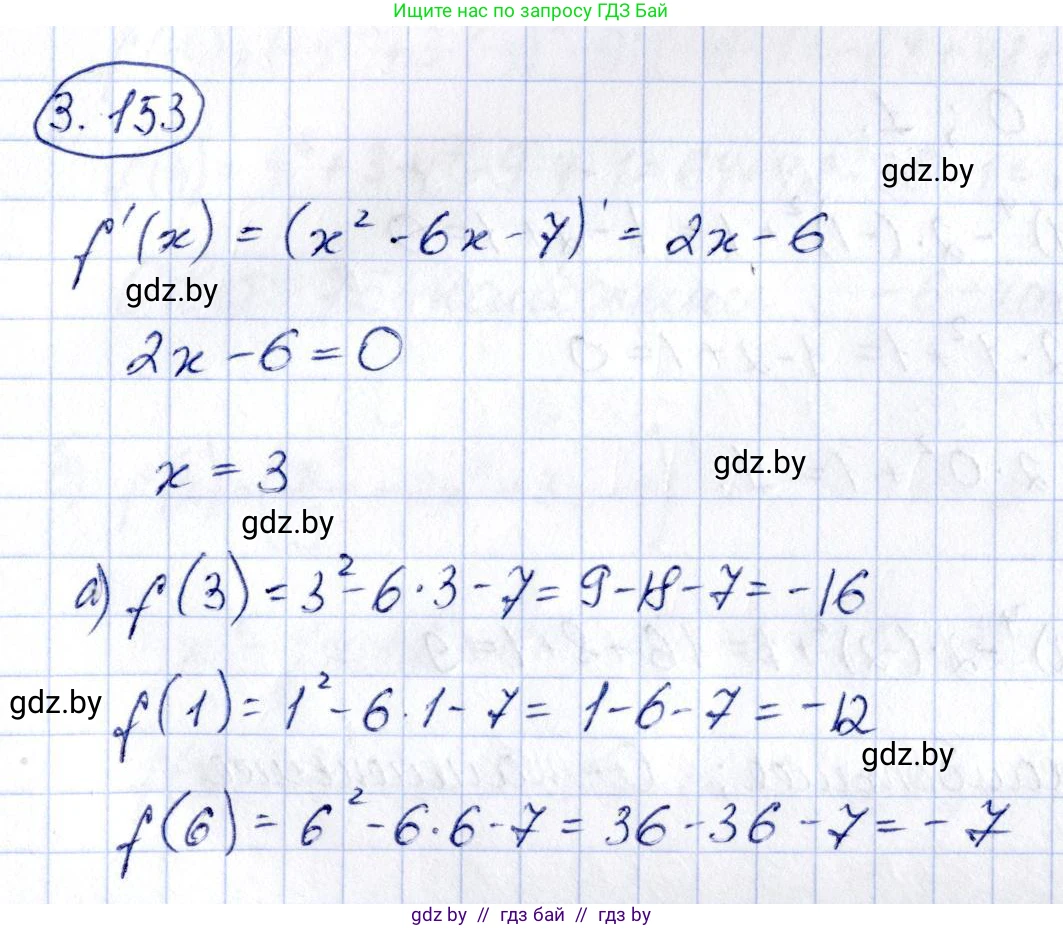 Ищите нас по запросу ГДЗ Бай
3.153
gdz.by
f'(x) = (x² - 6x - 7)' = 2x - 6
gdz.by
2x - 6 = 0
x = 3
gdz.by
gdz.by
а) f(3) = 3² - 6·3 - 7 = 9 - 18 - 7 = -16
gdz.by
f(1) = 1² - 6·1 - 7 = 1 - 6 - 7 = -12
gdz.by
f(6) = 6² - 6·6 - 7 = 36 - 36 - 7 = -7
gdz.by // гдз бай // гдз by